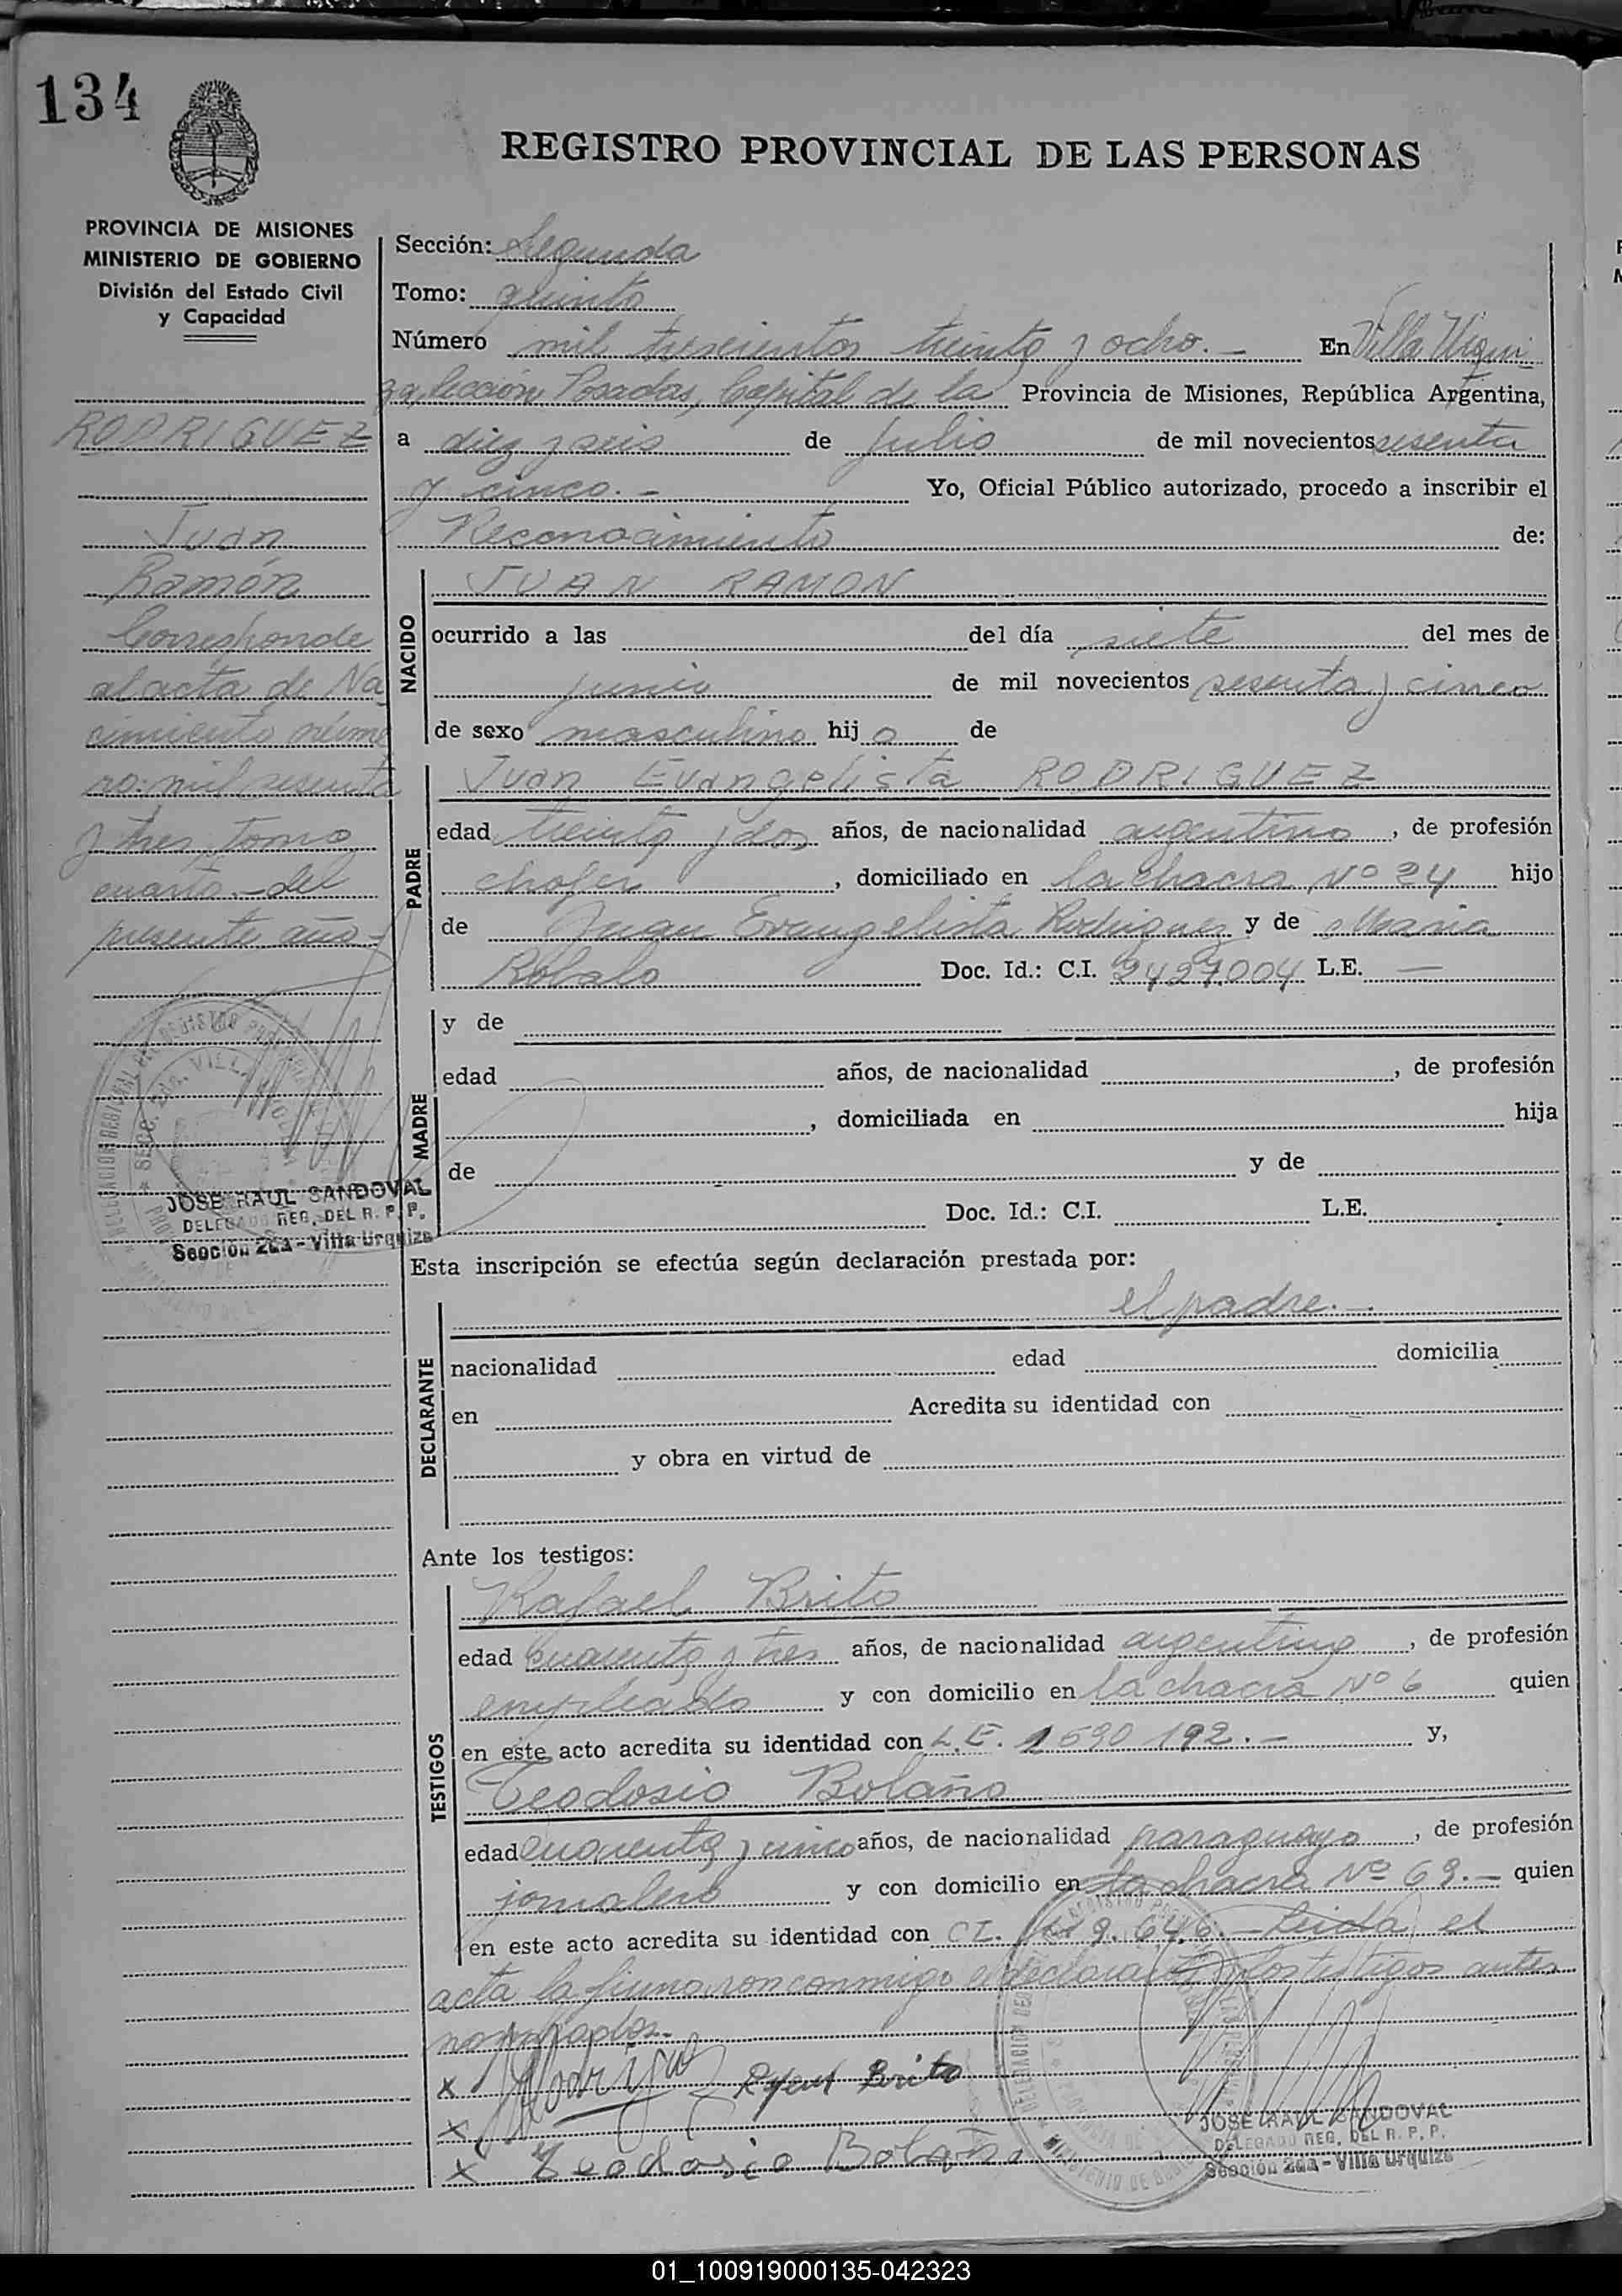 134
REGISTRO PROVINCIAL DE LAS PERSONAS
PROVINCIA DE MISIONES
MINISTERIO DE GOBIERNO
División del Estado Civil
y Capacidad
RODRIGUEZ
Juan
Ramón
Corresponde
al acta de Na
cimiento núme
ro: mil sesenta
y tres, Tomo
cuarto - del
presente año -
JOSE RAUL SANDOVAL
DELEGADO REG. DEL R. P. P.
Sección 2da - Villa Urquiza
Sección: Segunda
Tomo: quinto
Número mil trescientos treinta y ocho. - En Villa Urqui
za, Sección Posadas, Capital de la Provincia de Misiones, República Argentina,
a diez y seis de Julio de mil novecientos sesenta
y cinco. - Yo, Oficial Público autorizado, procedo a inscribir el
Reconocimiento de:
NACIDO
JUAN RAMON
ocurrido a las del día siete del mes de
junio de mil novecientos sesenta y cinco
de sexo masculino hijo de
PADRE
Juan Evangelista RODRIGUEZ
edad treinta y dos años, de nacionalidad argentino, de profesión
chofer, domiciliado en la chacra Nº 24 hijo
de Juan Evangelista Rodriguez y de Maria
Robalo Doc. Id.: C.I. 2427.004 L.E. —
MADRE
y de
edad años, de nacionalidad , de profesión
, domiciliada en hija
de y de
Doc. Id.: C.I. L.E.
Esta inscripción se efectúa según declaración prestada por:
DECLARANTE
el padre. -
nacionalidad edad domicilia
en Acredita su identidad con
y obra en virtud de
Ante los testigos:
TESTIGOS
Rafael Brito
edad cuarenta y tres años, de nacionalidad argentino, de profesión
empleado y con domicilio en la chacra Nº 6 quien
en este acto acredita su identidad con L.E. 1590 192. - y,
Teodosio Bolaño
edad cuarenta y cinco años, de nacionalidad paraguayo, de profesión
jornalero y con domicilio en la chacra Nº 69. - quien
en este acto acredita su identidad con CI. 9.646. - Leida el
acta la firmaron conmigo el declarante y los testigos antes
nombrados. -
x Rodriguez Rafael Brito
x
x Teodosio Bolaño
JOSE RAUL SANDOVAL
DELEGADO REG. DEL R. P. P.
Sección 2da - Villa Urquiza
01_100919000135-042323